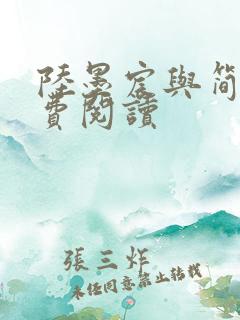 陸墨宸與簡
費閱讀
張三炸
未經同意禁止转载